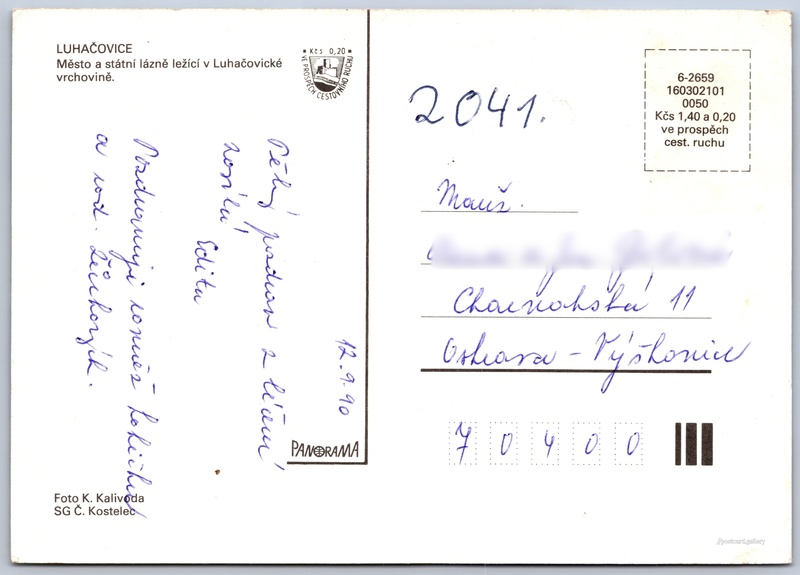 LUHAČOVICE
Město a státní lázně ležící v Luhačovické
vrchovině.
Kčs 0,20
VE PROSPĚCH CESTOVNÍHO RUCHU
Pěkný pozdrav z léčení
zasílá
Edita
12.9.90
Pozdravuji
a rod.
PANORAMA
Foto K. Kalivoda
SG Č. Kostelec
2041.
6-2659
160302101
0050
Kčs 1,40 a 0,20
ve prospěch
cest. ruchu
Manž.
11
Ostrava - Výškovice
7 0 4 0 0
//postcard.gallery